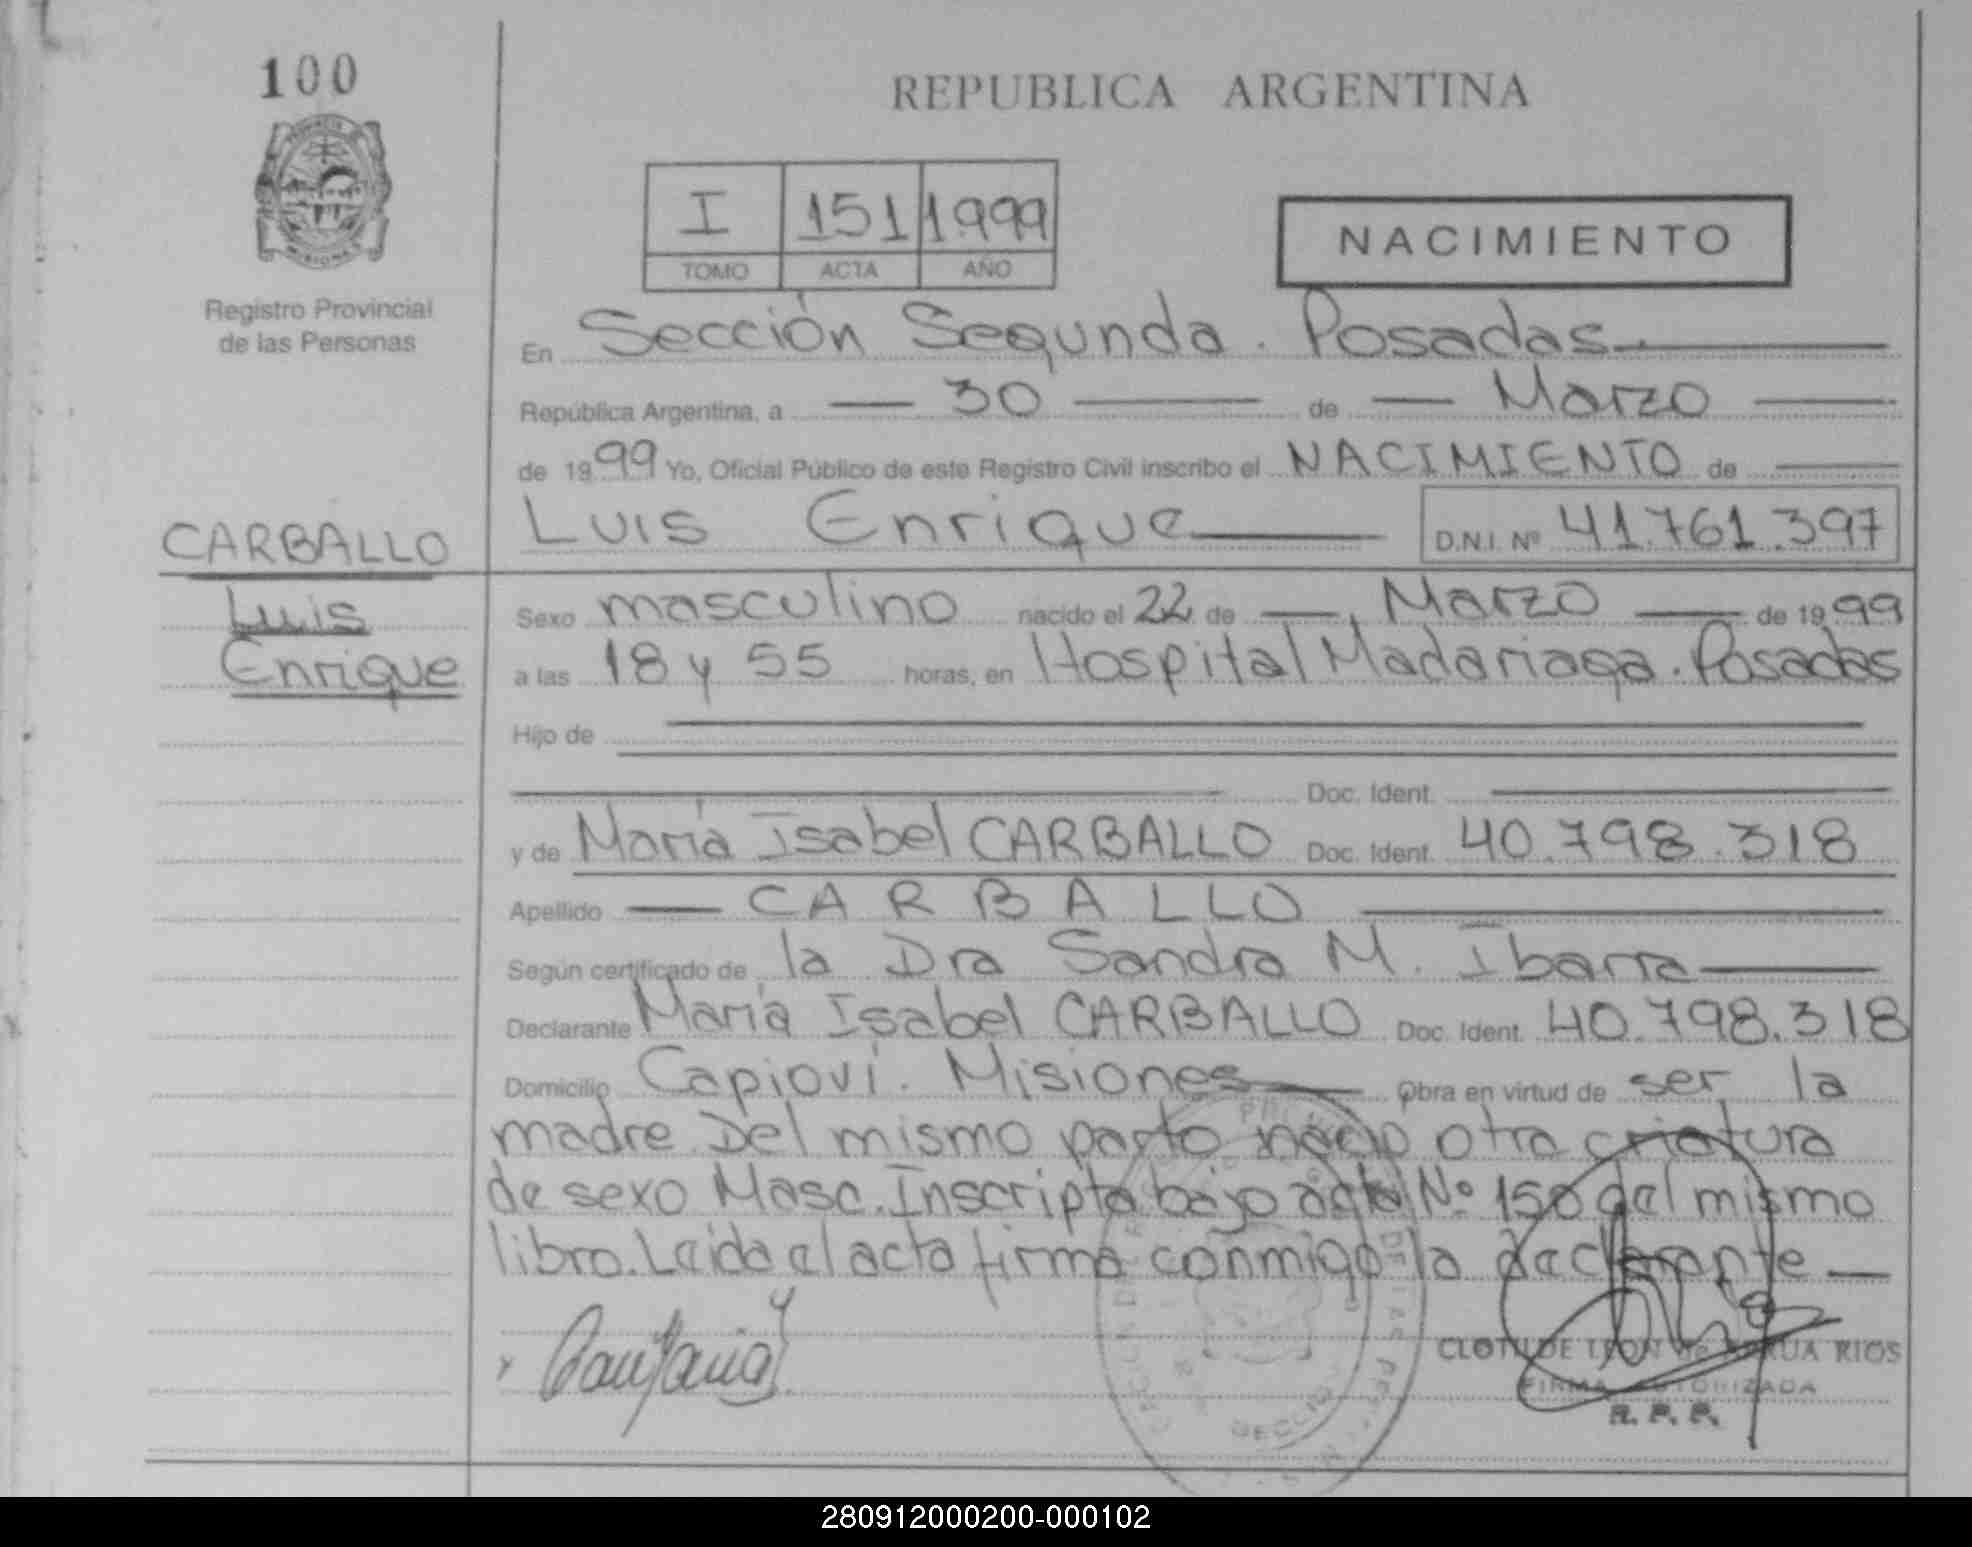 100
REPUBLICA ARGENTINA
I 151 1999
TOMO ACTA AÑO
NACIMIENTO
Registro Provincial
de las Personas
En Sección Segunda. Posadas
República Argentina, a 30 de Marzo
de 1999 Yo, Oficial Público de este Registro Civil inscribo el NACIMIENTO de
CARBALLO
Luis
Enrique
Luis Enrique D.N.I. Nº 41.761.397
Sexo masculino nacido el 22 de Marzo de 1999
a las 18 y 55 horas, en Hospital Madariaga. Posadas
Hijo de
Doc. Ident.
y de María Isabel CARBALLO Doc. Ident. 40.798.318
Apellido CARBALLO
Según certificado de la Dra Sandra M. Ibarra
Declarante María Isabel CARBALLO Doc. Ident. 40.798.318
Domicilio Capioví. Misiones Obra en virtud de ser la
madre. Del mismo parto nació otra criatura
de sexo Masc. Inscripta bajo acta Nº 150 del mismo
libro. Leída el acta firma conmigo la declarante
CLOTILDE LEON de RUA RIOS
FIRMA AUTORIZADA
R. P. P.
280912000200-000102